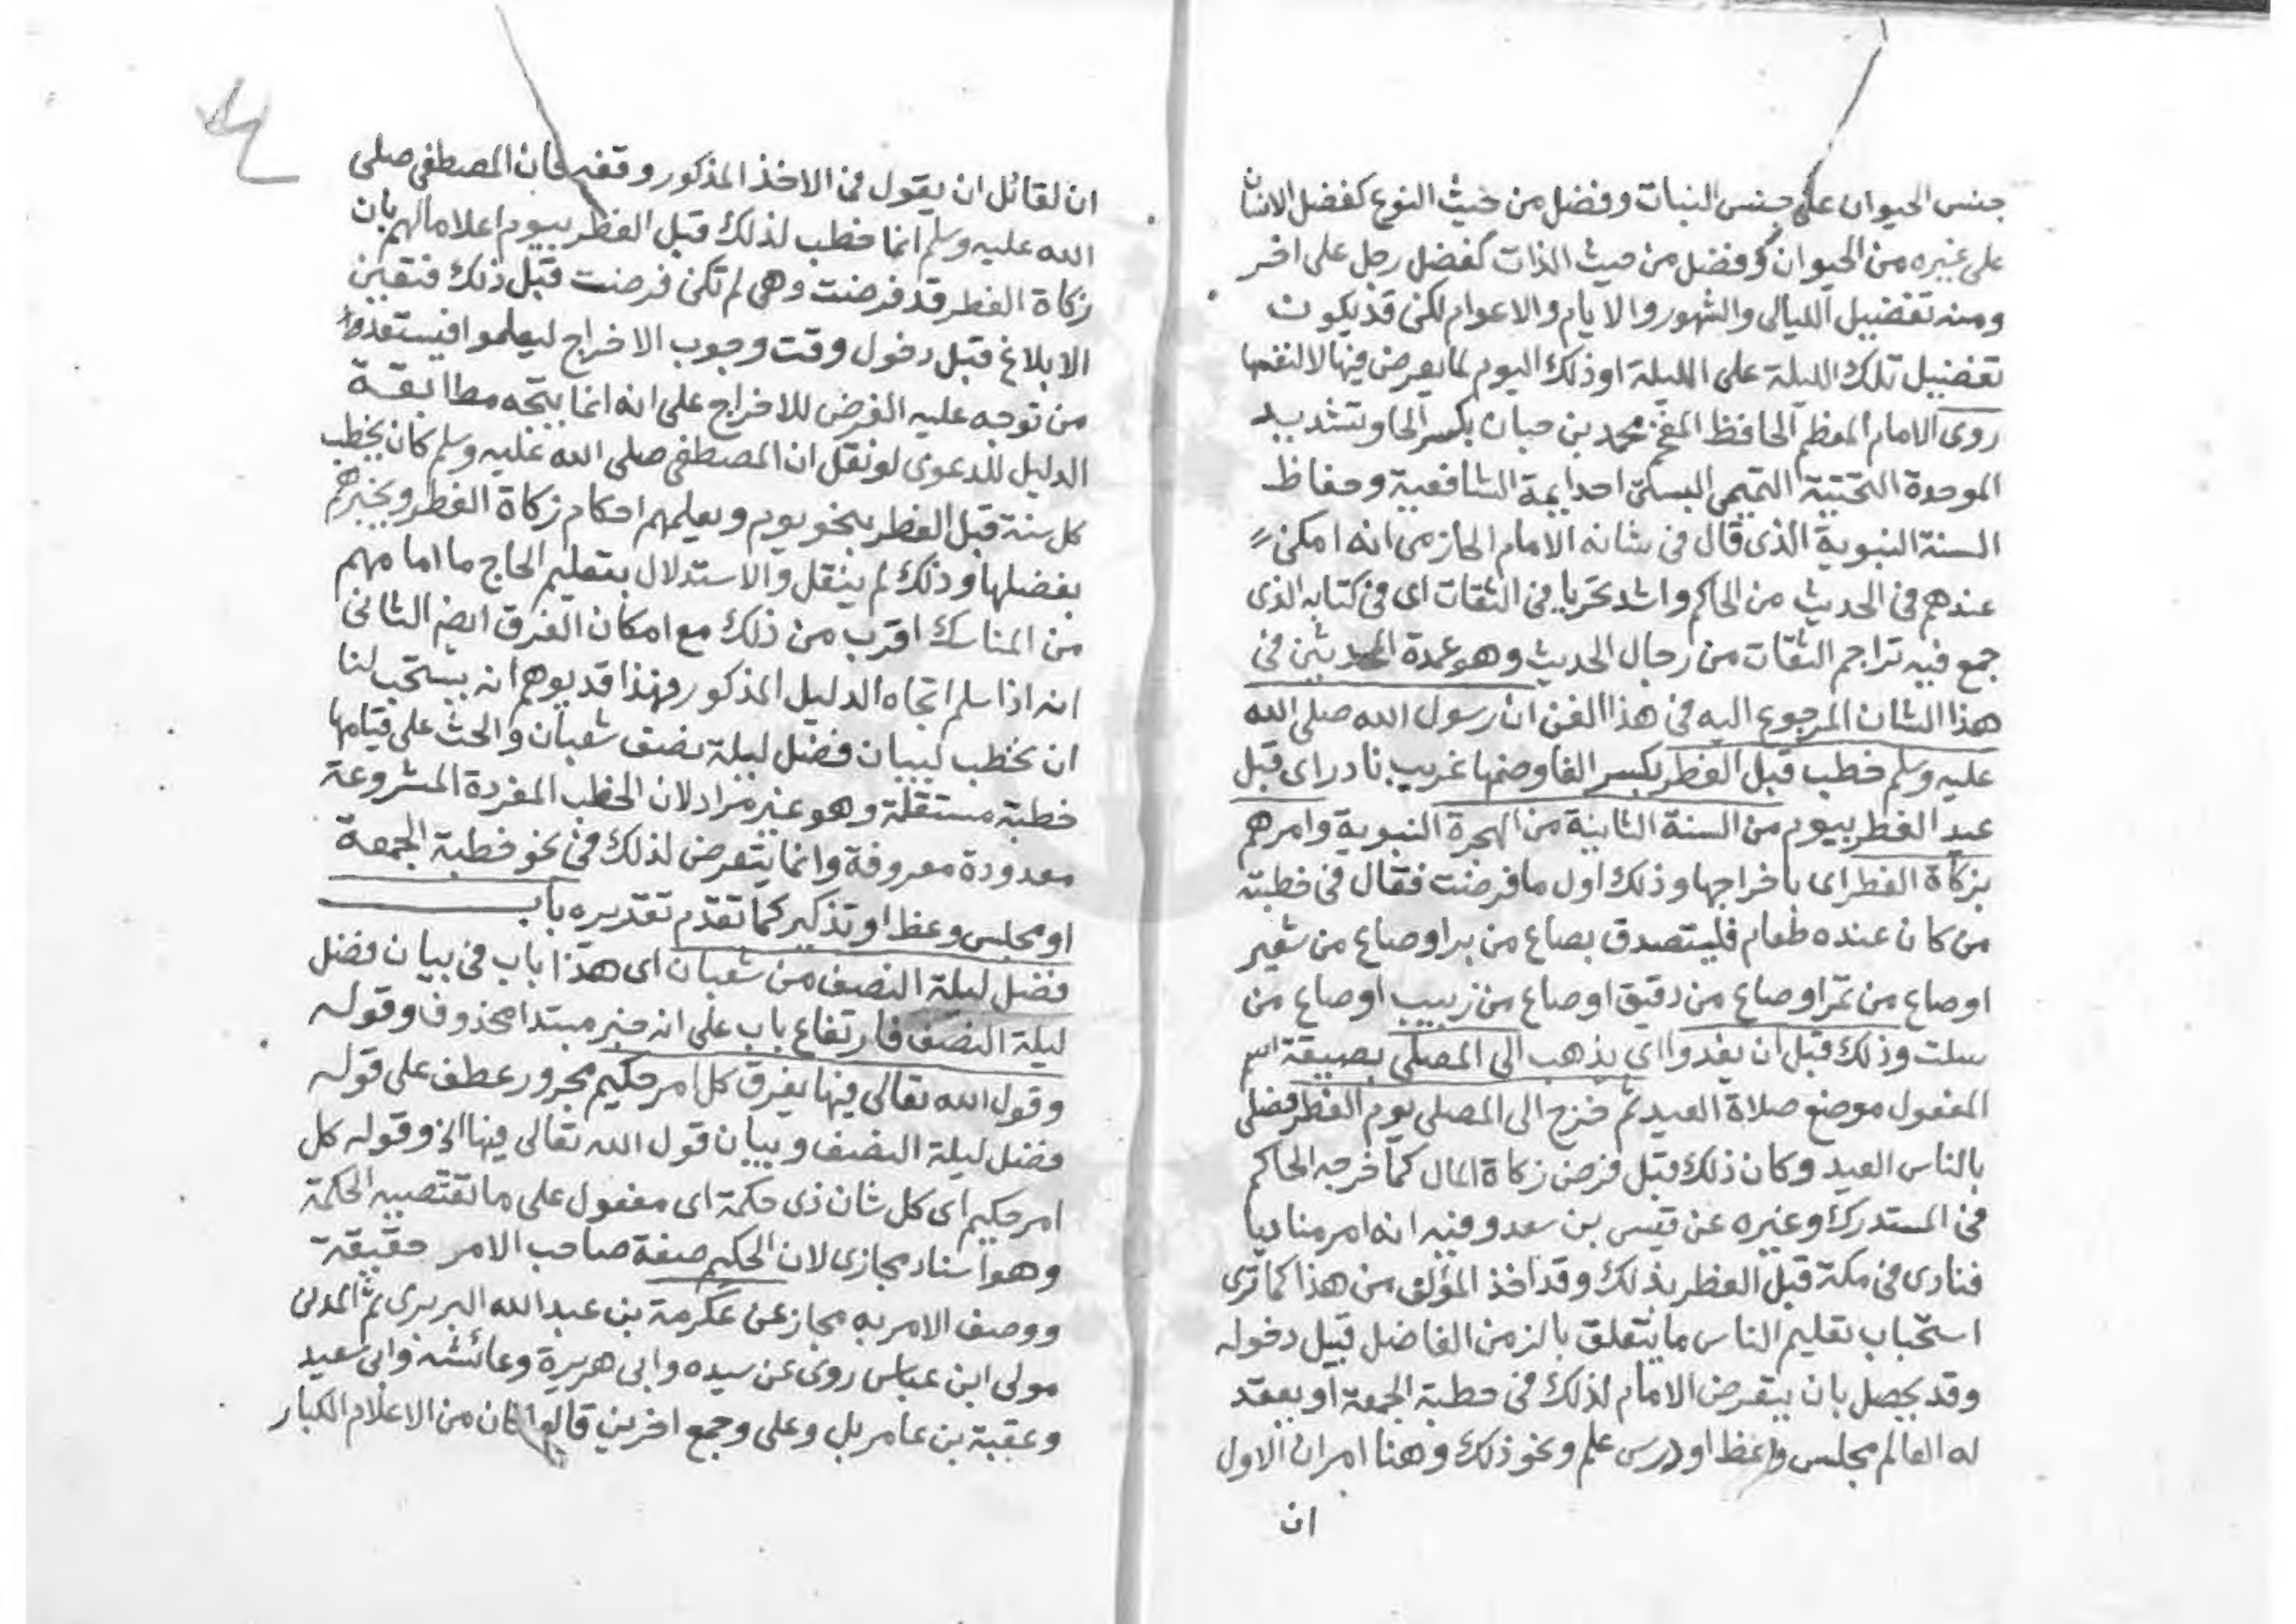 جنس الحيوان على جنس النبات وفضل من حيث النوع كفضل الانسان
على غيره من الحيوان وفضل من حيث الذات كفضل رجل على اخر
ومنه تفضيل الليالى والشهور والايام والاعوام لكن قد يكون
تفضيل تلك الليلة على الليلة او ذلك اليوم لما يعرض فيها لا لنفسها
روى الامام المعظم الحافظ المفخم محمد بن حبان بكسر الحا وتشديد
الموحدة التحتية التميمى البستى احد ايمة الشافعية وحفاظ
السنة النبوية الذى قال فى شانه الامام الحازمى انه امكن
عندهم فى الحديث من الحاكم واشد تحريا فى الثقات اى فى كتابه الذى
جمع فيه تراجم الثقات من رجال الحديث وهو عمدة المحدثين فى
هذا الشان المرجوع اليه فى هذا الفن ان رسول الله صلى الله
عليه وسلم خطب قبل الفطر بكسر الفا وضمها غريب نادر اى قبل
عيد الفطر بيوم من السنة الثانية من الهجرة النبوية وامرهم
بزكاة الفطر اى باخراجها وذلك اول ما فرضت فقال فى خطبته
من كان عنده طعام فليتصدق بصاع من بر او صاع من شعير
او صاع من تمر او صاع من دقيق او صاع من زبيب او صاع من
سلت وذلك قبل ان يغدوا اى يذهب الى المصلى بصيغة اسم
المفعول موضع صلاة العيد ثم خرج الى المصلى يوم الفطر فصلى
بالناس العيد وكان ذلك قبل فرض زكاة المال كما خرجه الحاكم
فى المستدرك وغيره عن قيس بن سعد وفيه انه امر مناديا
فنادى فى مكة قبل الفطر بذلك وقد اخذ المؤلف من هذا كما ترى
استحباب تعليم الناس ما يتعلق بالزمن الفاضل قبيل دخوله
وقد يحصل بان يتعرض الامام لذلك فى خطبة الجمعة او يعقد
له العالم مجلس واعظ او درس علم ونحو ذلك وهنا امران الاول
ان
ان لقائل ان يقول فى الاخذ المذكور وقفه فان المصطفى صلى
الله عليه وسلم انما خطب لذلك قبل الفطر بيوم اعلاما لهم بان
زكاة الفطر قد فرضت وهى لم تكن فرضت قبل ذلك فتعين
الابلاغ قبل دخول وقت وجوب الاخراج ليعلموا فيستعدوا
من توجه عليه الفرض للاخراج على انه انما يتجه مطابقة
الدليل للدعوى لو نقل ان المصطفى صلى الله عليه وسلم كان يخطب
كل سنة قبل الفطر بنحو يوم ويعلمهم احكام زكاة الفطر ويخبرهم
بفضلها وذلك لم ينقل والاستدلال بتعليم الحاج ما امامهم
من المناسك اقرب من ذلك مع امكان الفرق ايضا الثانى
انه اذا سلم اتجاه الدليل المذكور فهذا قد يوهم انه يستحب لنا
ان نخطب لبيان فضل ليلة نصف شعبان والحث على قيامها
خطبة مستقلة وهو غير مراد لان الخطب المفردة المشروعة
معدودة معروفة وانما يتعرض لذلك فى نحو خطبة الجمعة
او مجلس وعظ او تذكير كما تقدم تقديره باب
فضل ليلة النصف من شعبان اى هذا باب فى بيان فضل
ليلة النصف فارتفاع باب على انه خبر مبتدا محذوف وقوله
وقول الله تعالى فيها يفرق كل امر حكيم مجرور عطف على قوله
فضل ليلة النصف وبيان قول الله تعالى فيها الخ وقوله كل
امر حكيم اى كل شان ذى حكمة اى مفعول على ما تقتضيه الحكمة
وهو اسناد مجازى لان الحكيم صفة صاحب الامر حقيقة
ووصف الامر به مجاز عن عكرمة بن عبد الله البربرى ثم المدنى
مولى ابن عباس روى عن سيده وابى هريرة وعائشة وابى سعيد
وعقبة بن عامر بل وعلى وجمع اخرين قالوا كان من الاعلام الكبار